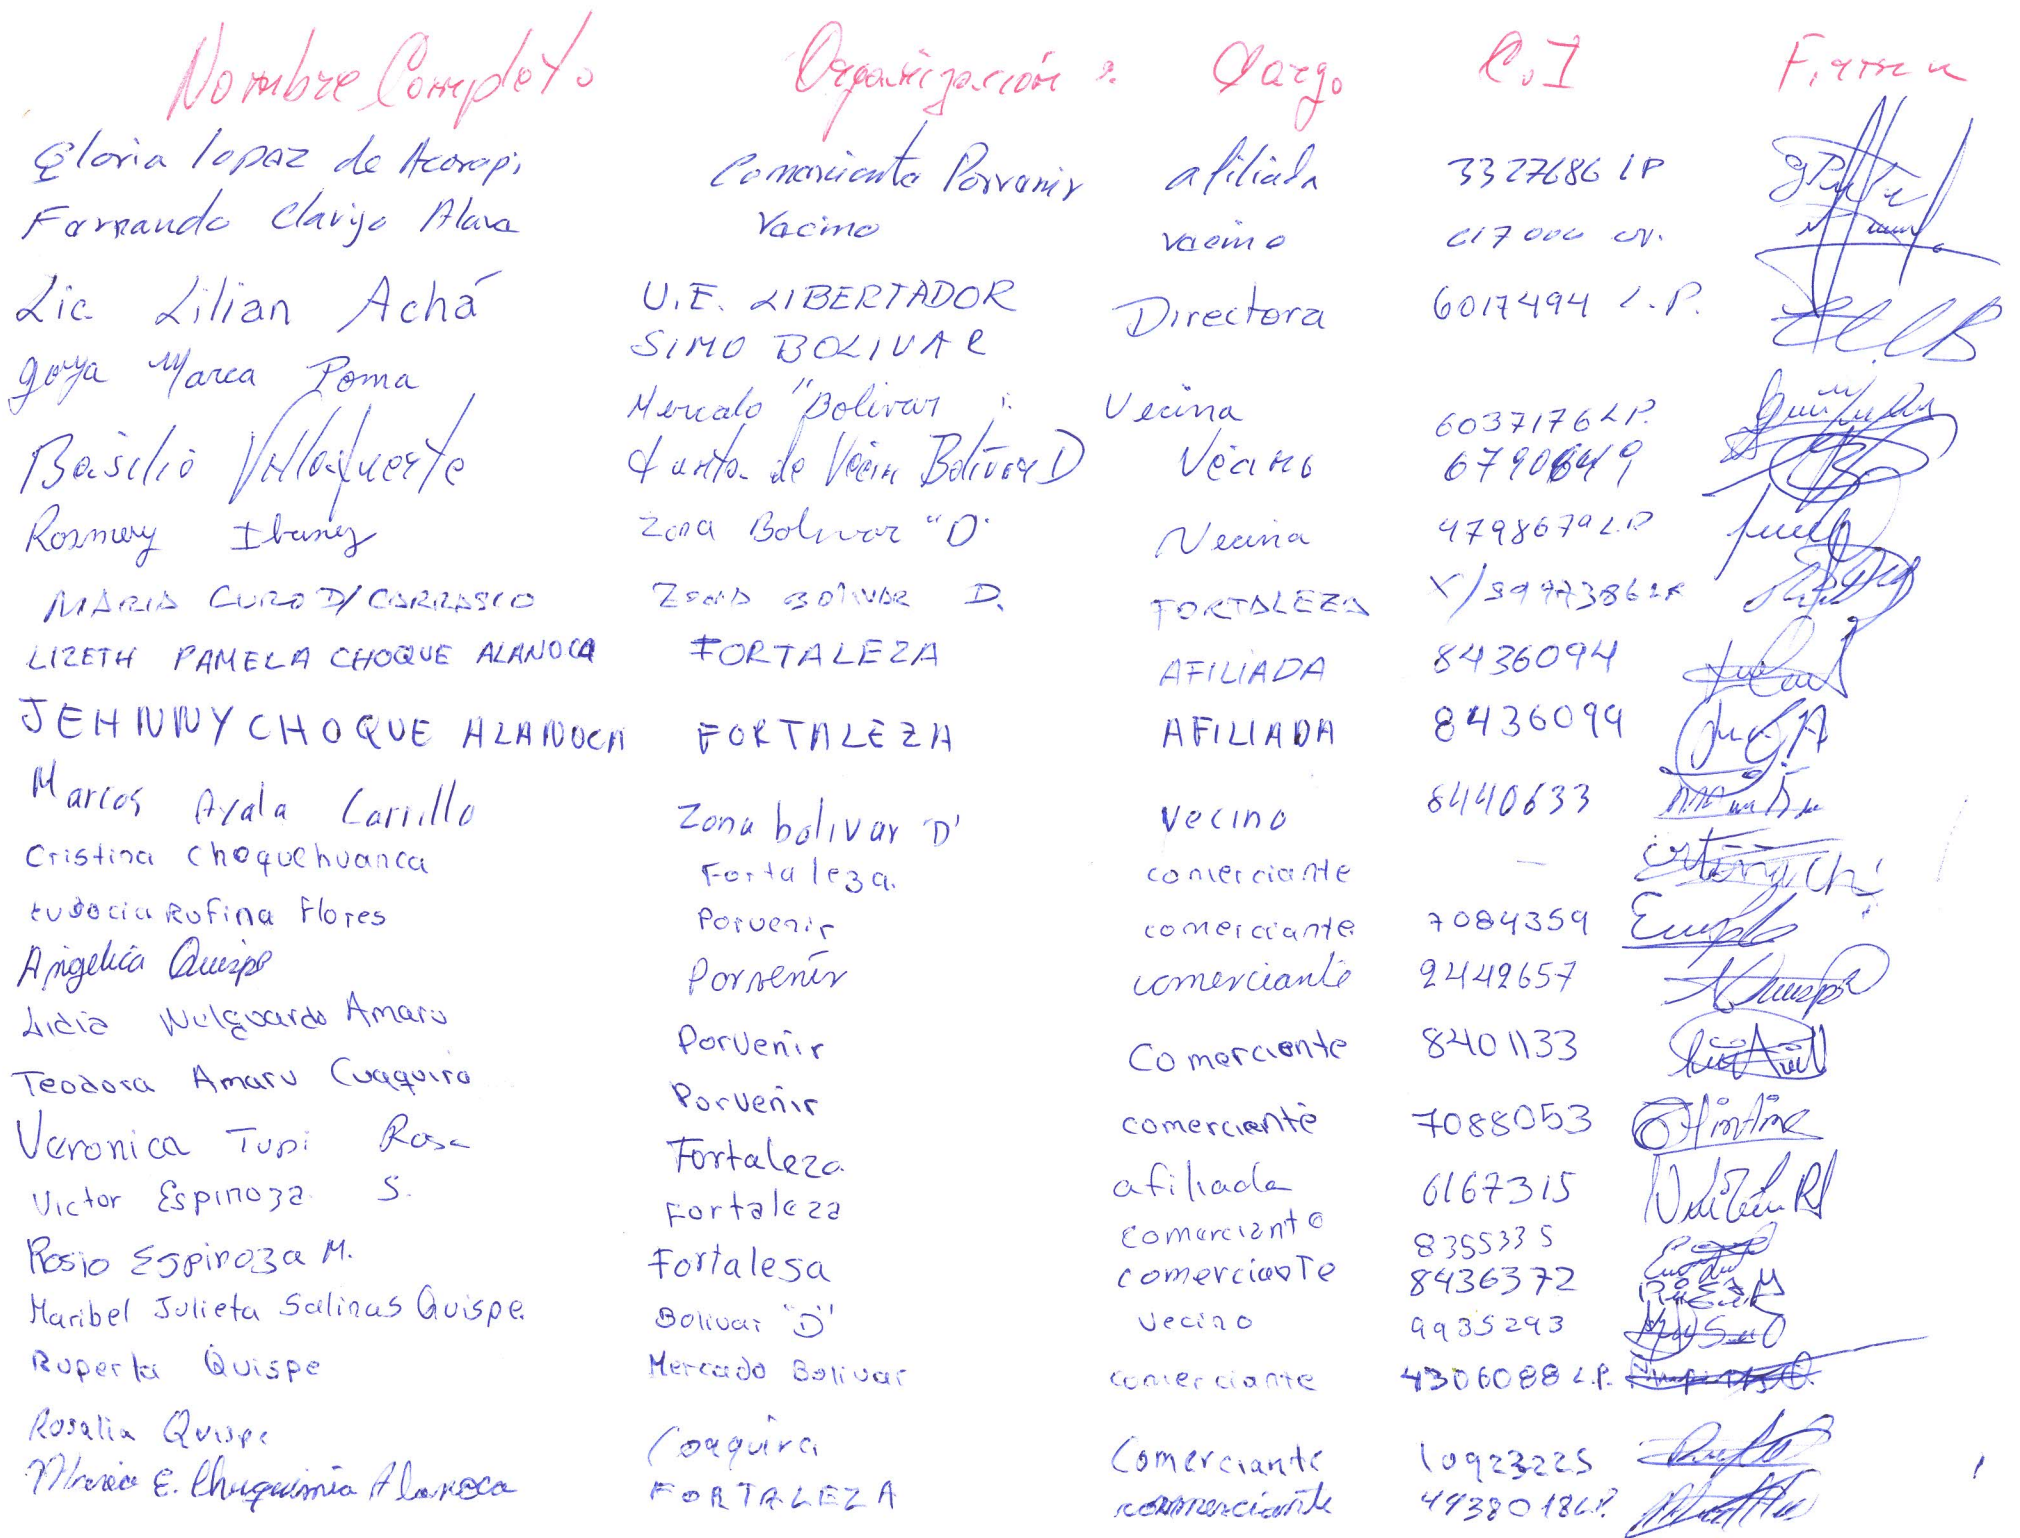 Nombre Completo Organización Cargo C.I Firma
Gloria Lopaz de Acarapi Comerciante Porvenir afiliada 3327686 LP
Fernando Clavijo Alava Vecino vecino
Lic. Lilian Achá U.E. LIBERTADOR Directora 6017494 L.P.
SIMO BOLIVAR
Goya Marca Poma Mercado "Bolivar Vecina 6037176 LP.
Basilio Villafuerte Junta de Vecin Bolívar D Vecino
Rosmery Ibanez Zona Bolivar "D" Vecina L.P
MARIA CURO D/ CARRASCO ZONA BOLIVAR D. FORTALEZA
LIZETH PAMELA CHOQUE ALANOCA FORTALEZA AFILIADA 8436094
JEHNNY CHOQUE ALANOCA FORTALEZA AFILIADA 8436099
Marcos Ayala Carrillo Zona bolivar 'D' Vecino 8440633
Cristina choquehuanca Fortaleza. comerciante —
Eudocia Rufina Flores Porvenir comerciante 7084359
Angelica Quispe Porvenir comerciante 2442657
Lidia Amaru Porvenir Comerciante 8401133
Teodora Amaru Cuaquira Porvenir comerciante 7088053
Veronica Tupi Rosa Fortaleza afiliada 6167315
Victor Espinoza S. Fortaleza comerciante 8355335
Rosio Espinoza M. Fortalesa comerciante 8436372
Maribel Julieta Salinas Quispe. Bolivar "D" Vecino 9935293
Ruperta Quispe Mercado Bolivar comerciante 4306088 L.P.
Rosalia Quispe Coaquira Comerciante 10923225
Maria E. Chuquimia Alanoca FORTALEZA comerciante 4938018 LP.